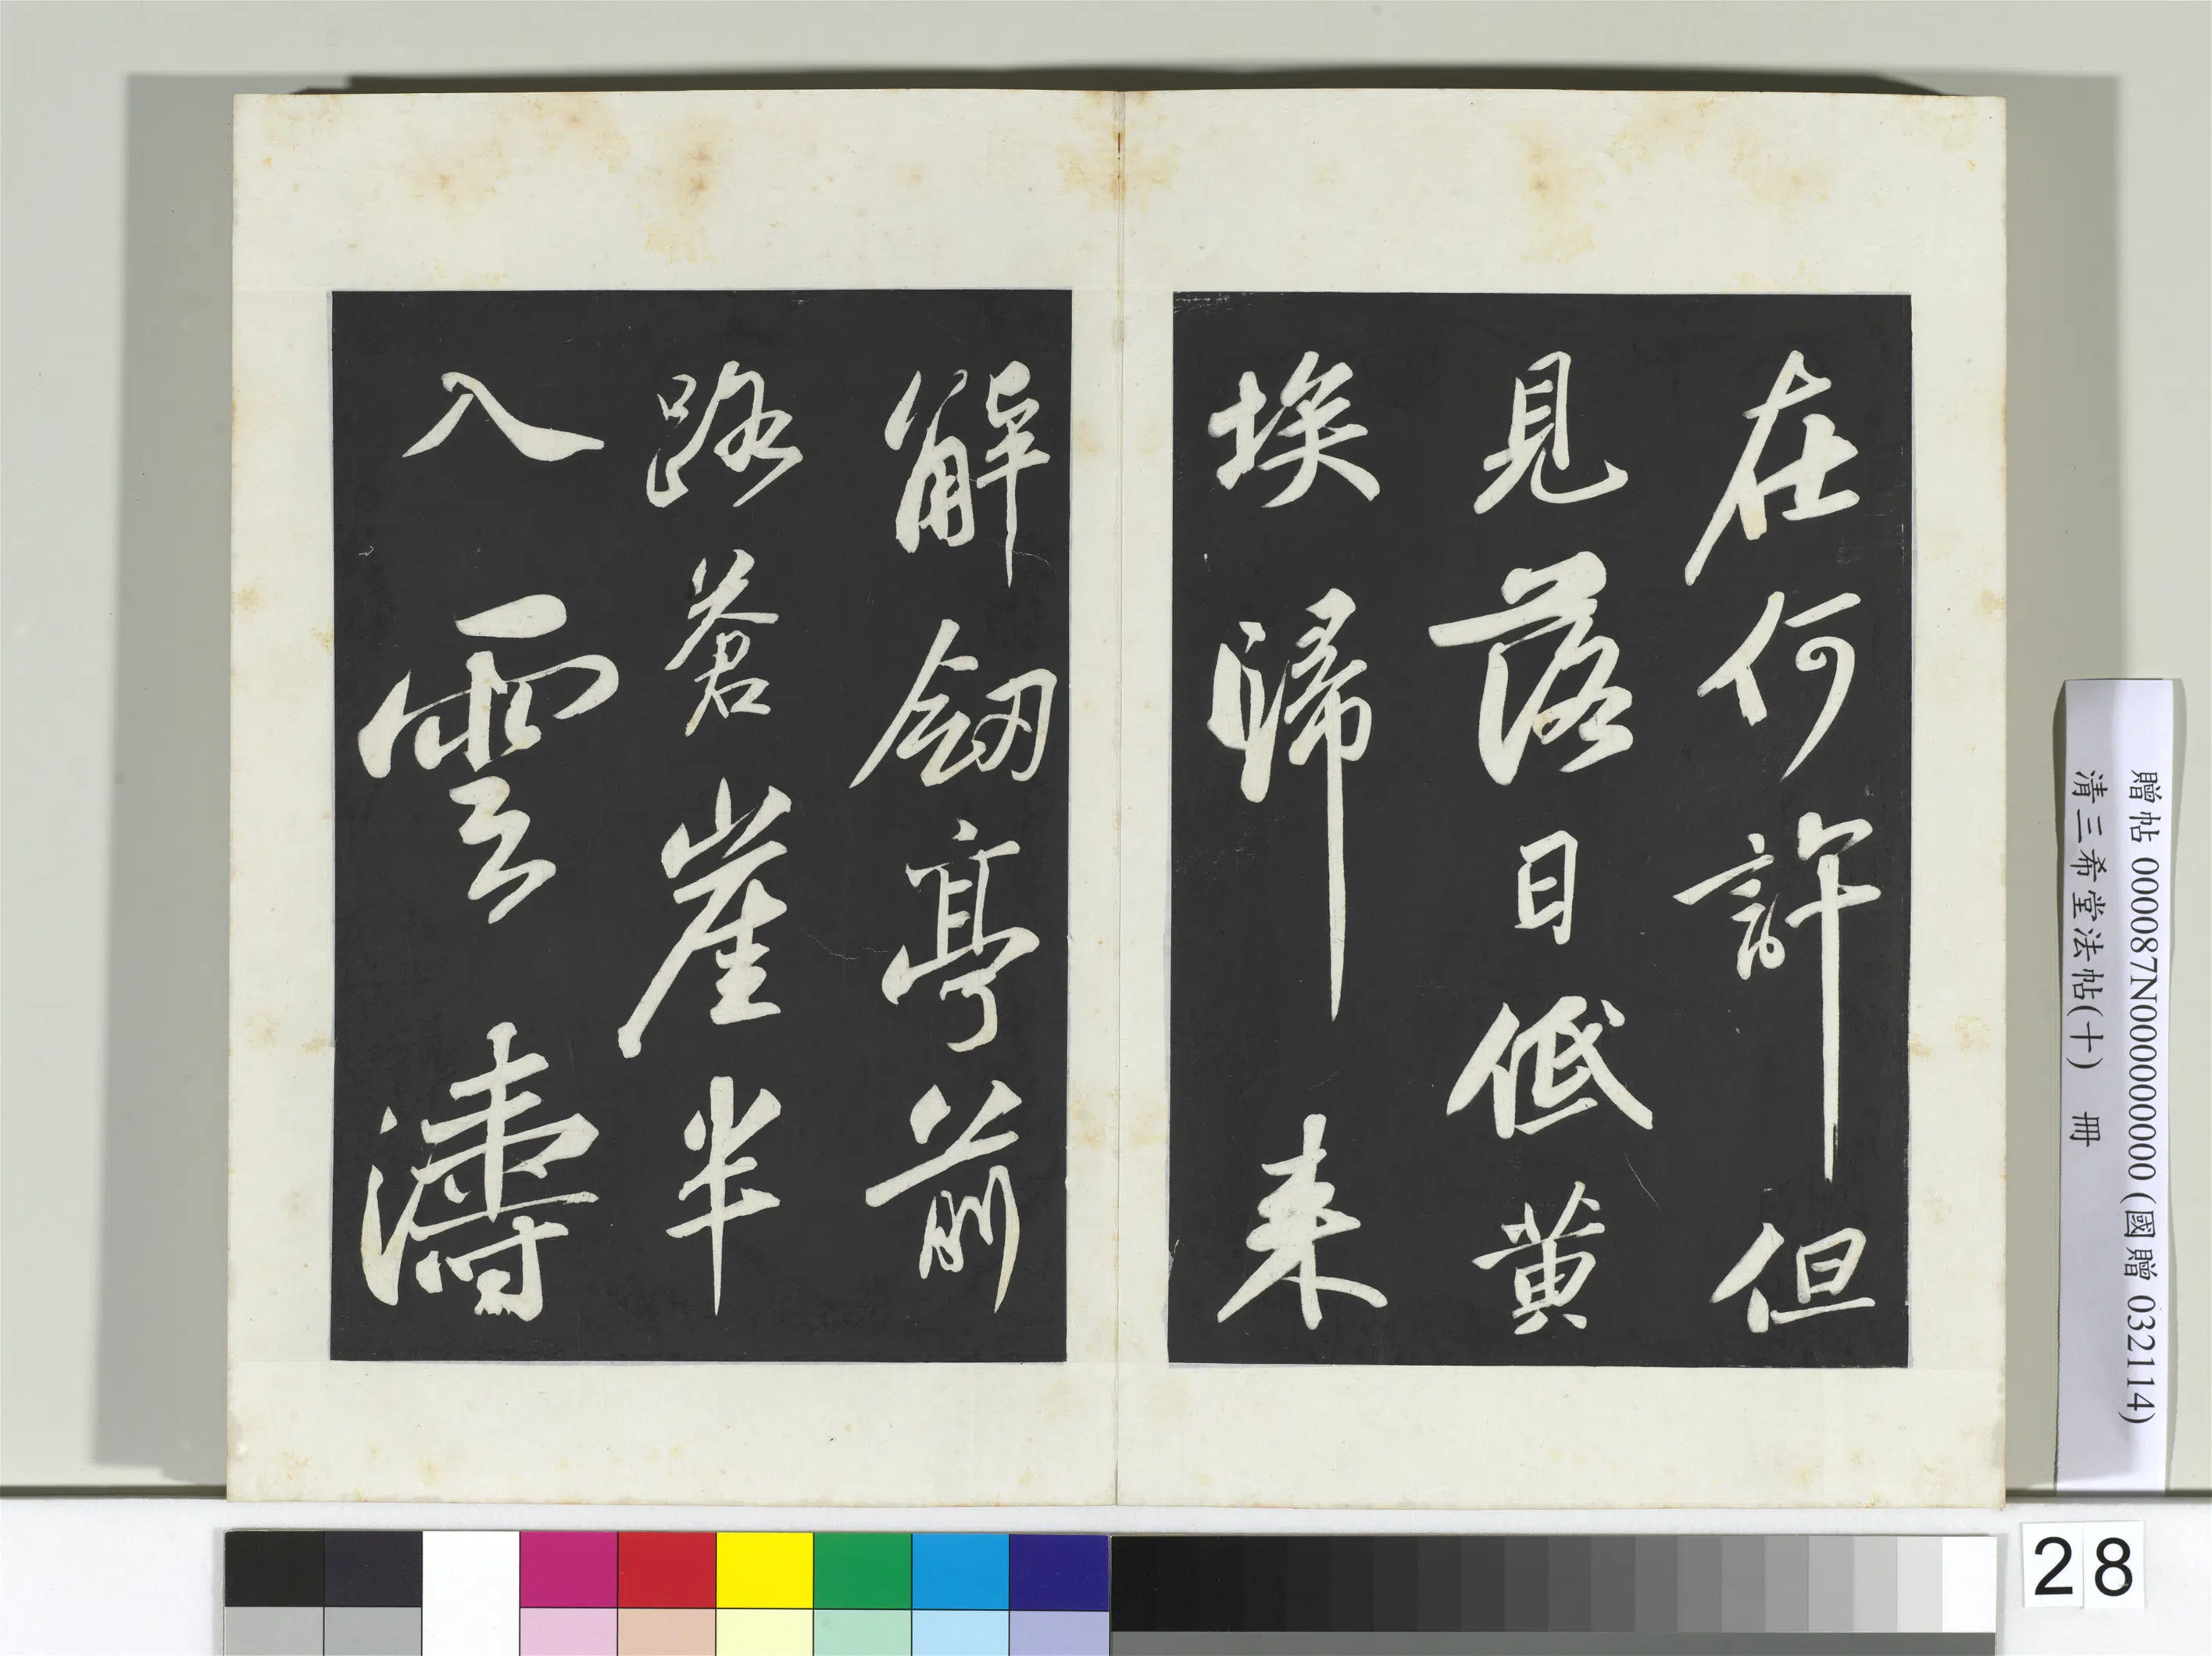 在何許但
見落日低黃
埃歸来
解劔亭前
路蒼崖半
入雲濤
贈帖 000087N000000000 (國贈 032114)
清三希堂法帖(十) 冊
28